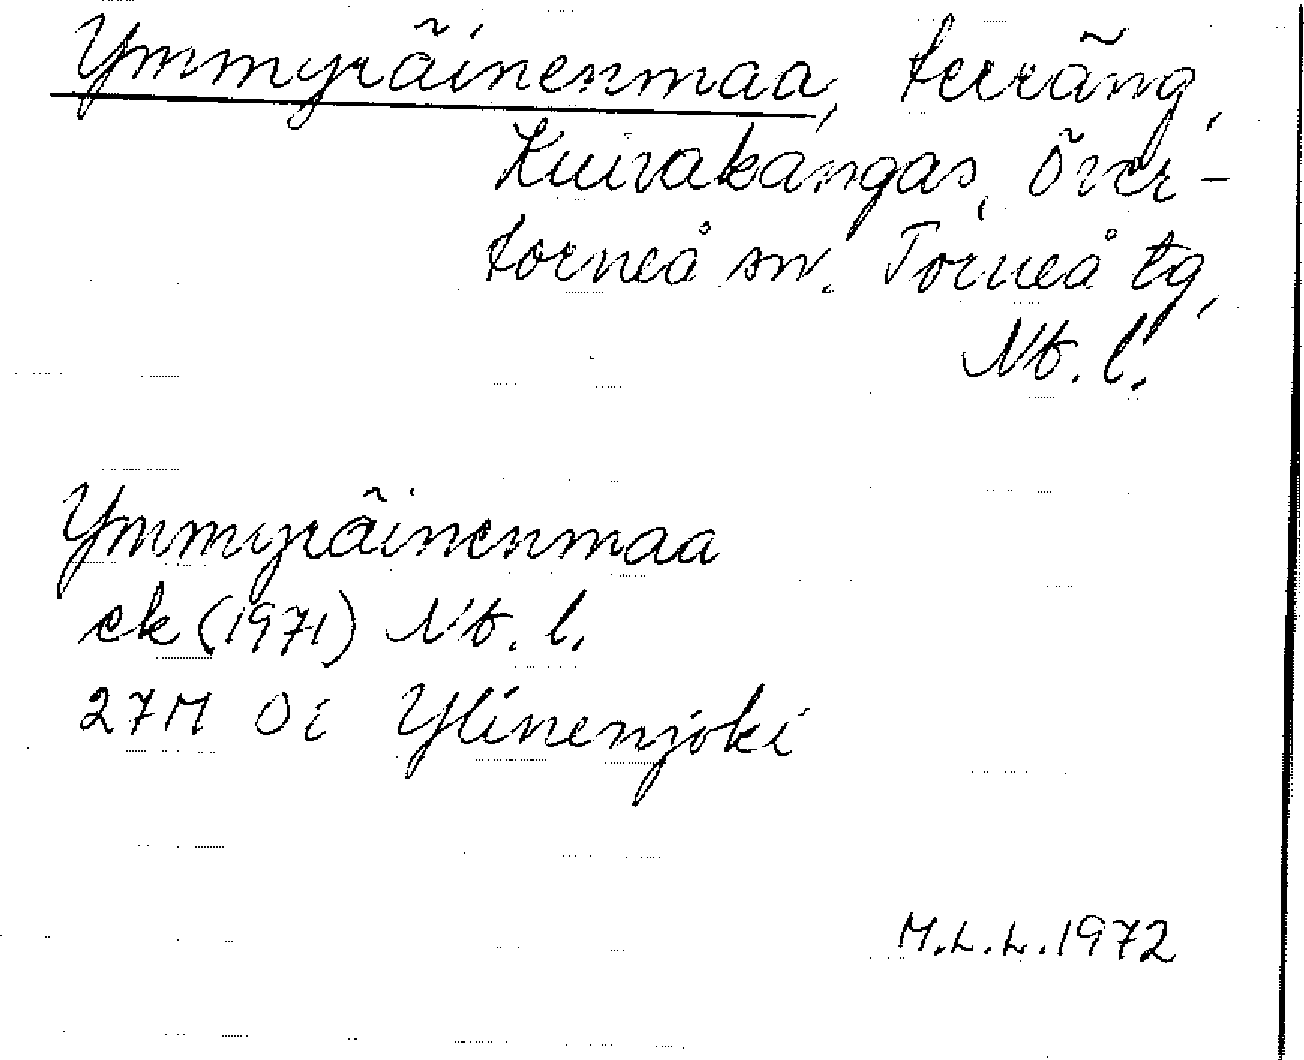 Ymmyräinenmaa, terräng,
Kuivakangas, Över-
torneå sn. Torneå tg,
Nb. l.
Ymmyräinenmaa
ek (1971) Nb. l.
27M 0i Ylinenjoki
M.L.L. 1972